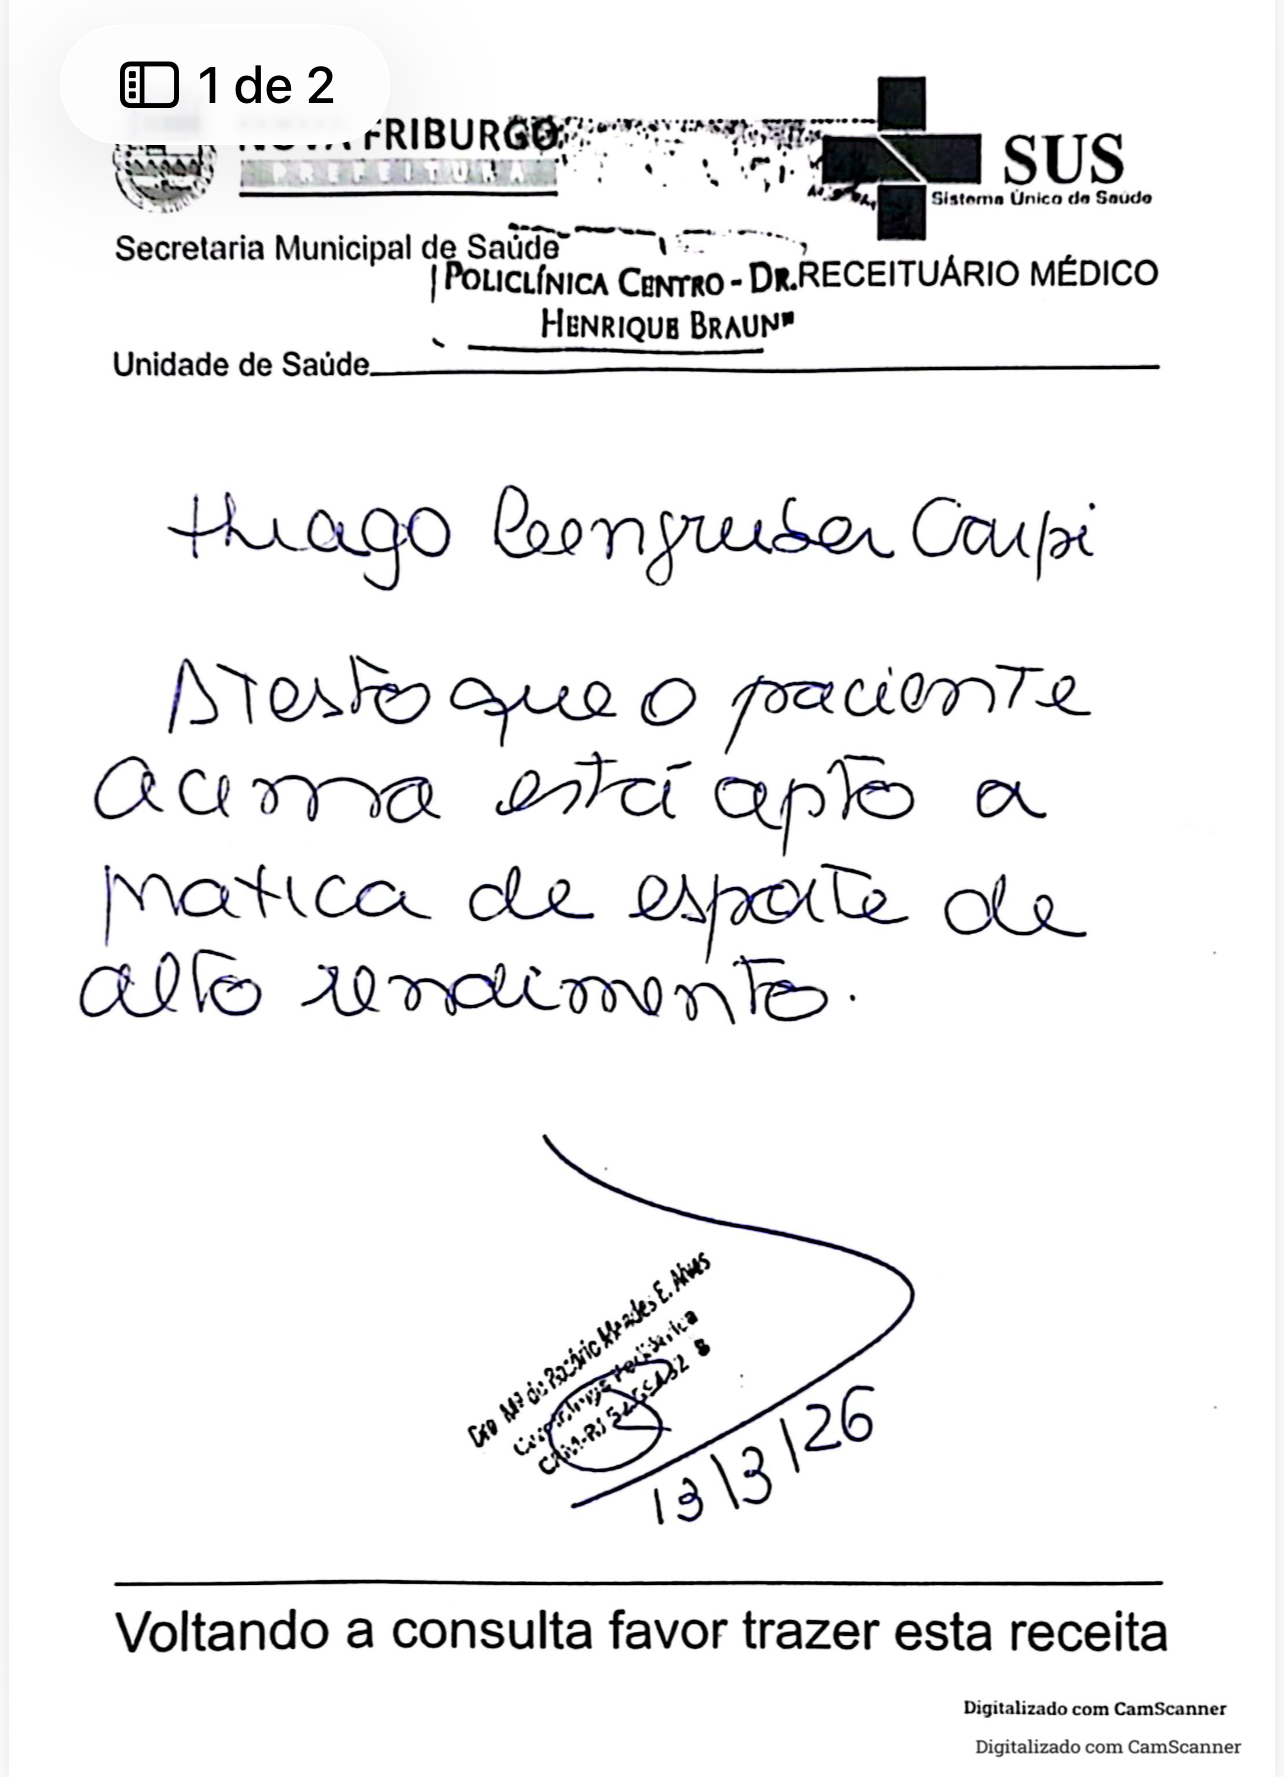 1 de 2
NOVA FRIBURGO
PREFEITURA
SUS
Sistema Único de Saúde
Secretaria Municipal de Saúde
RECEITUÁRIO MÉDICO
POLICLÍNICA CENTRO - DR.
HENRIQUE BRAUN"
Unidade de Saúde
Thiago Leengruber Carpi
Atesto que o paciente
acima está apto a
pratica de esporte de
alto rendimento.
Dra Mª do Rosário Mendes E. Alves
CRM-RJ
13/3/26
Voltando a consulta favor trazer esta receita
Digitalizado com CamScanner
Digitalizado com CamScanner